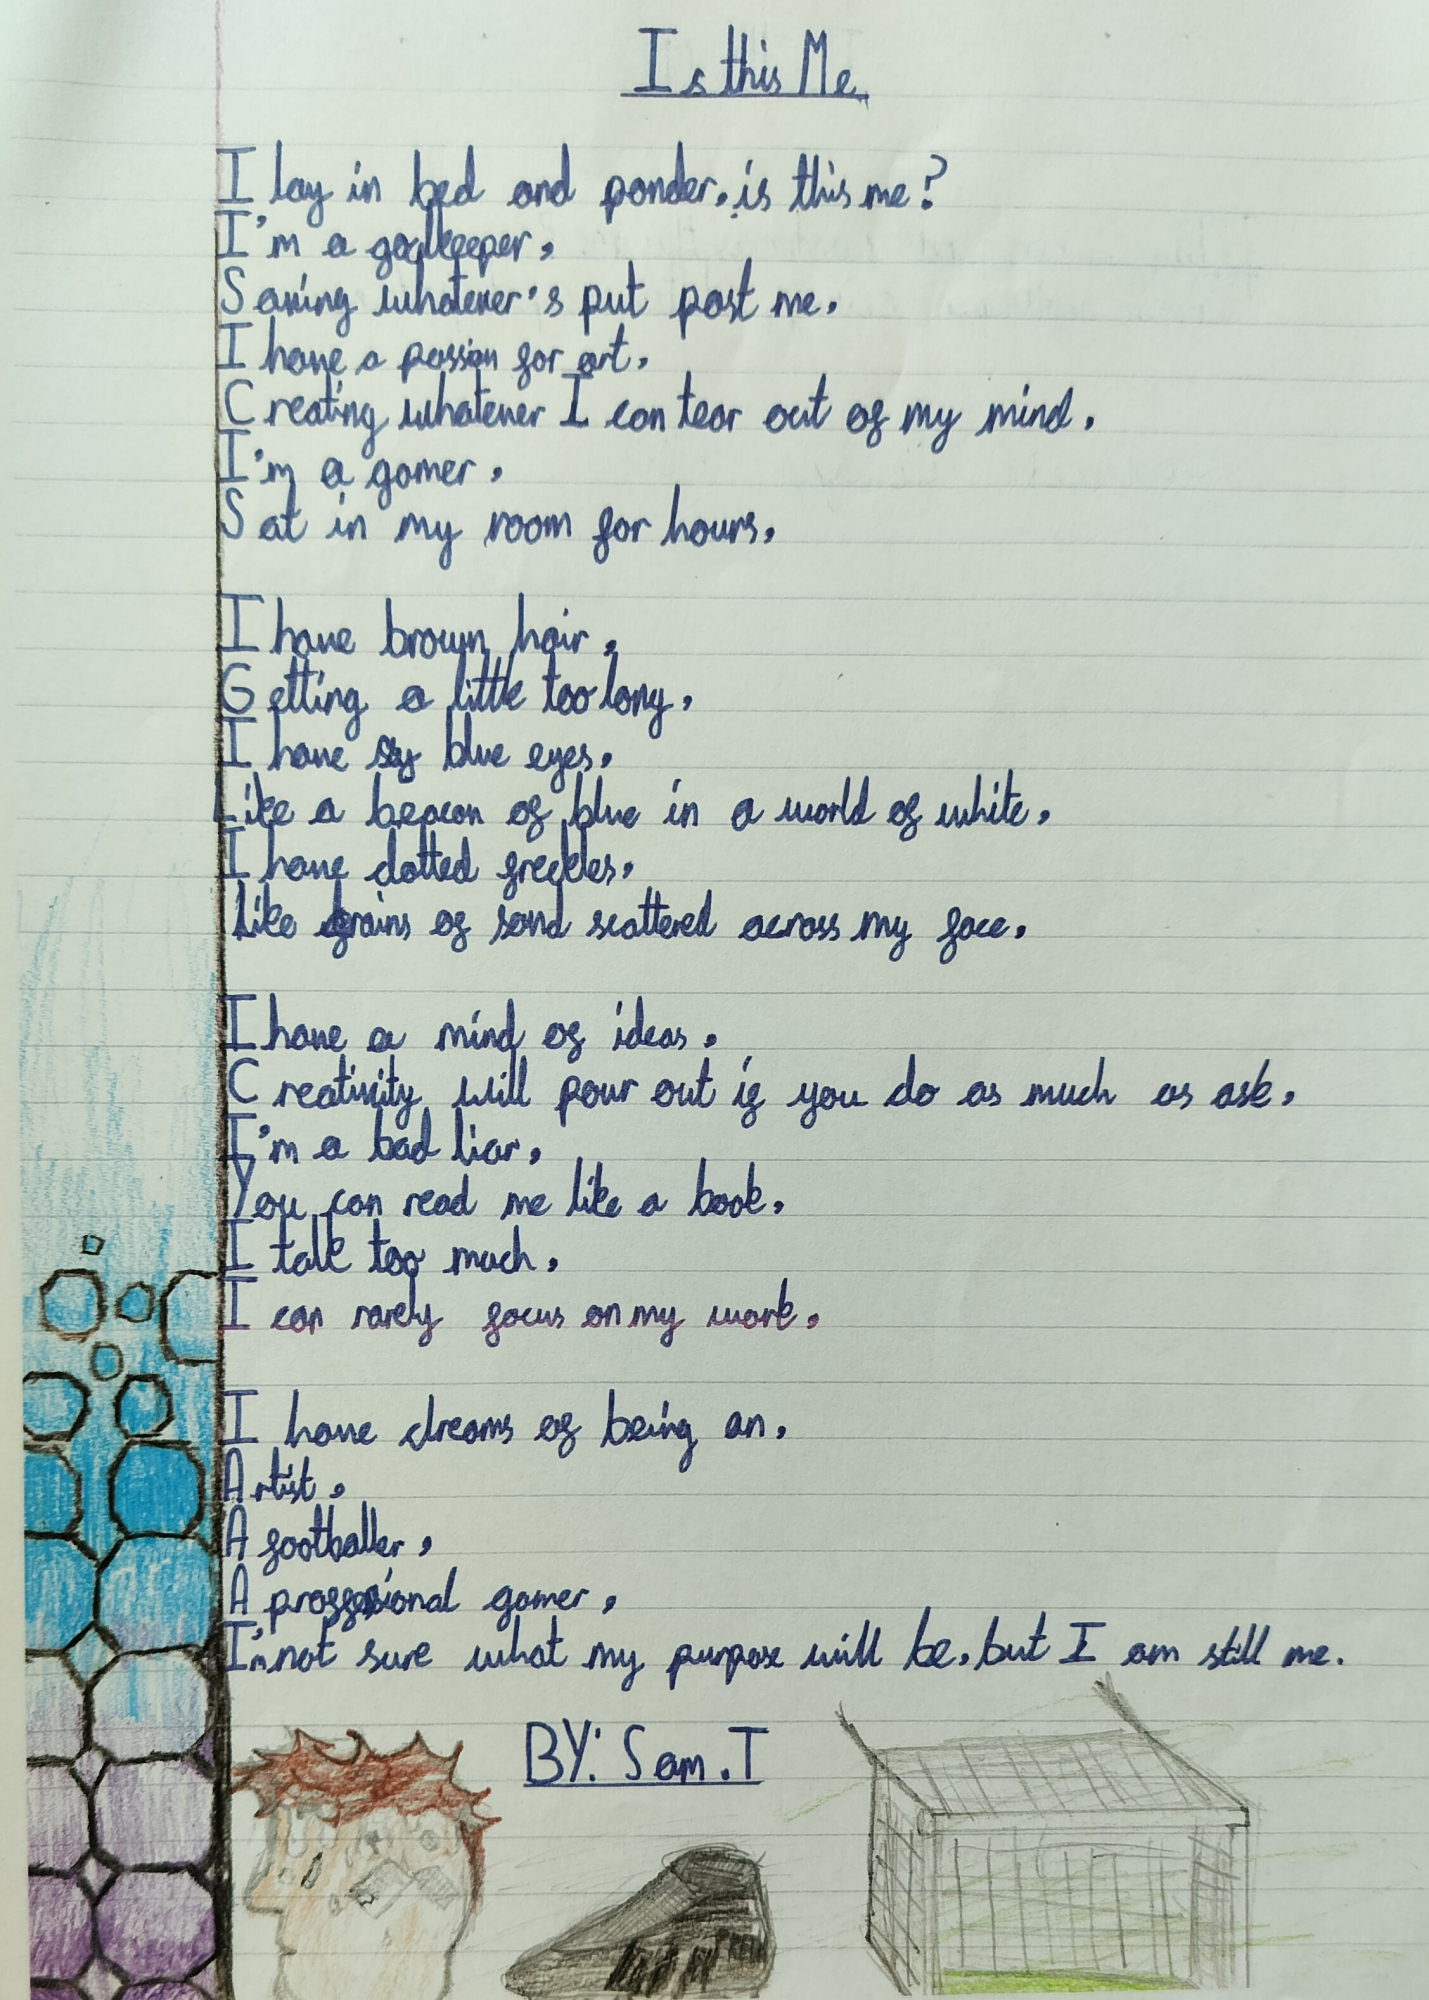 Is this Me
I lay in bed and ponder, is this me?
I'm a goalkeeper,
Saving whatever's put past me,
I have a passion for art,
Creating whatever I can tear out of my mind,
I'm a gamer,
Sat in my room for hours,
I have brown hair,
Getting a little too long,
I have sky blue eyes,
Like a beacon of blue in a world of white,
I have dotted freckles,
Like grains of sand scattered across my face,
I have a mind of ideas,
Creativity will pour out if you do as much as ask,
I'm a bad liar,
You can read me like a book,
I talk too much,
I can rarely focus on my work,
I have dreams of being an,
Artist,
A footballer,
A proffesional gamer,
I'm not sure what my purpose will be, but I am still me.
BY: Sam.T